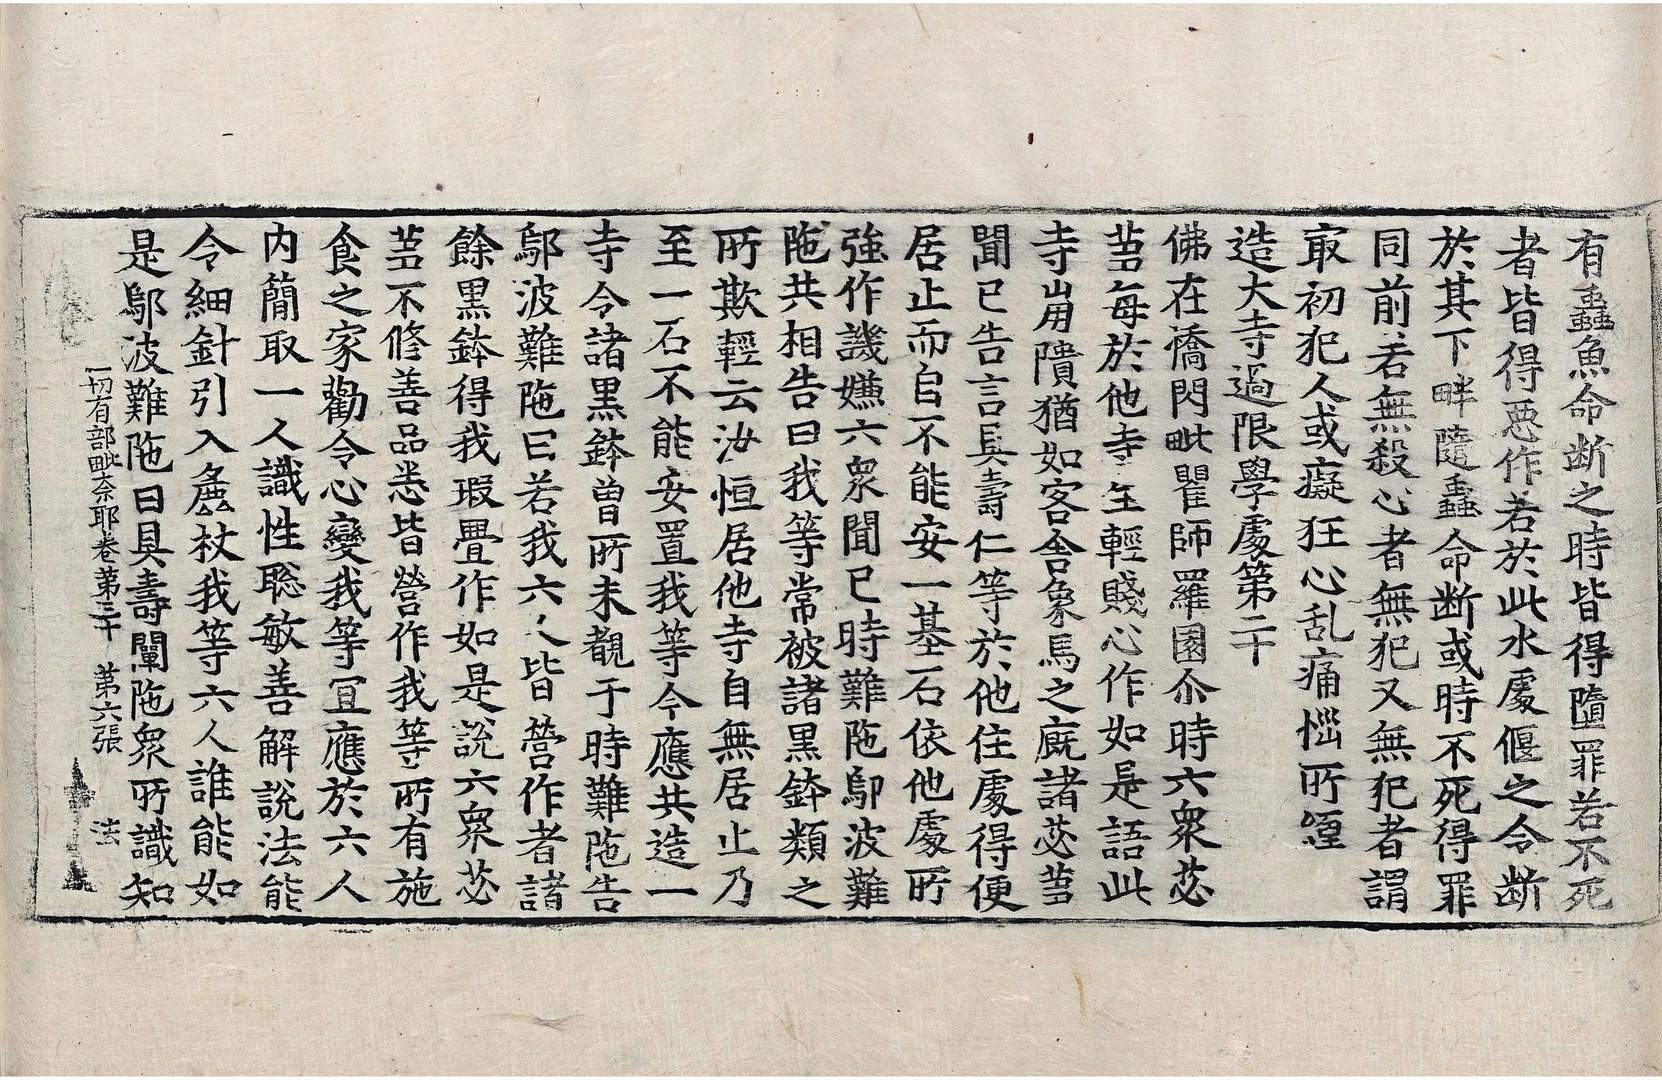 有蟲魚命断之時皆得墮罪若不死
者皆得悪作若於此水處偃之令断
於其下畔隨蟲命断或時不死得罪
同前若無殺心者無犯又無犯者謂
㝡初犯人或癡狂心乱痛惱所纏
造大寺過限學處第二十
佛在憍閃毗瞿師羅園尒時六衆苾
蒭每於他寺生輕賤心作如是語此
寺崩隤猶如客舍象馬之廐諸苾蒭
聞已告言具壽仁等於他住處得便
居止而自不能安一基石依他處所
強作譏嫌六衆聞已時難陁鄔波難
陁共相告曰我等常被諸黒鉢類之
所欺輕云汝恒居他寺自無居止乃
至一石不能安置我等今應共造一
寺令諸黒鉢曽所未覩于時難陁告
鄔波難陁曰若我六人皆營作者諸
餘黒鉢得我瑕疊作如是說六衆苾
蒭不修善品悉皆營作我等所有施
食之家勸令心變我等冝應於六人
内簡取一人識性聡敏善解說法能
令細針引入麁杖我等六人誰能如
是鄔波難陁曰具壽闡陁衆所識知
一切有部毗奈耶卷第三十 第六張 法